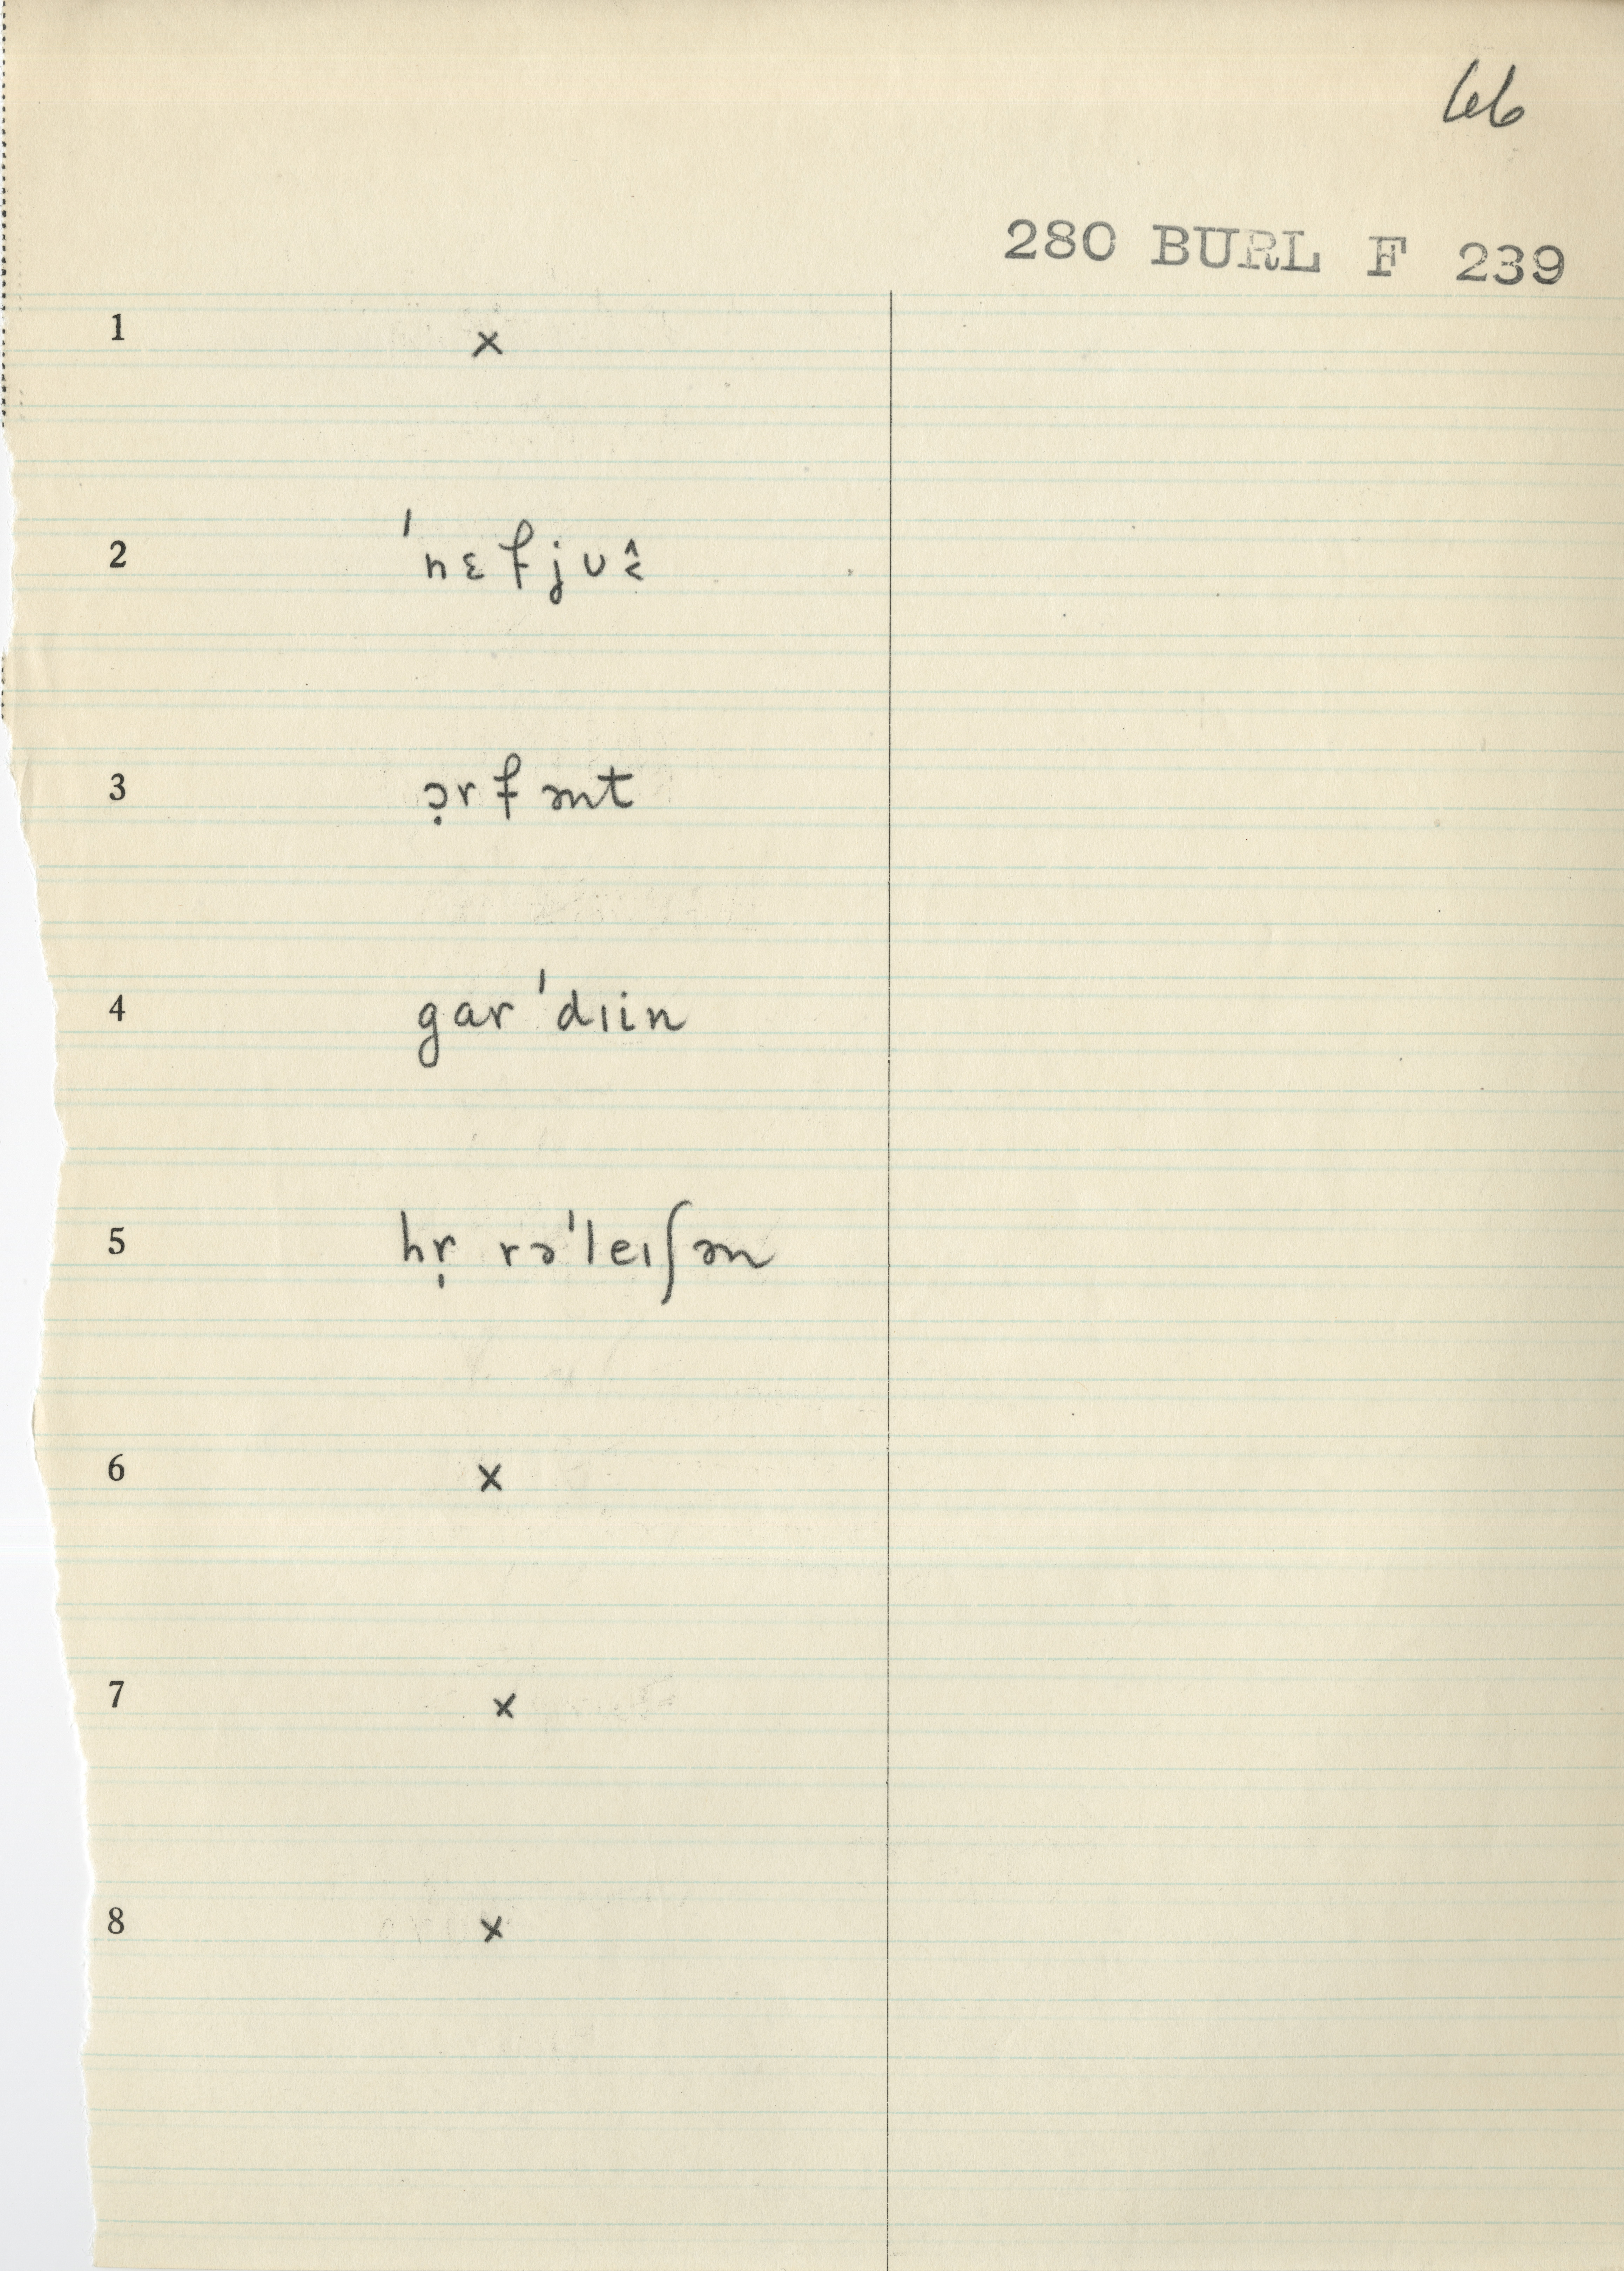 66
280 BURL F 239
1 ×
2 ˈnɛfjʊ˄˂
3 ɔ̣rfənt
4 garˈdɪin
5 hr̩ rəˈleɪʃən
6 ×
7 ×
8 ×